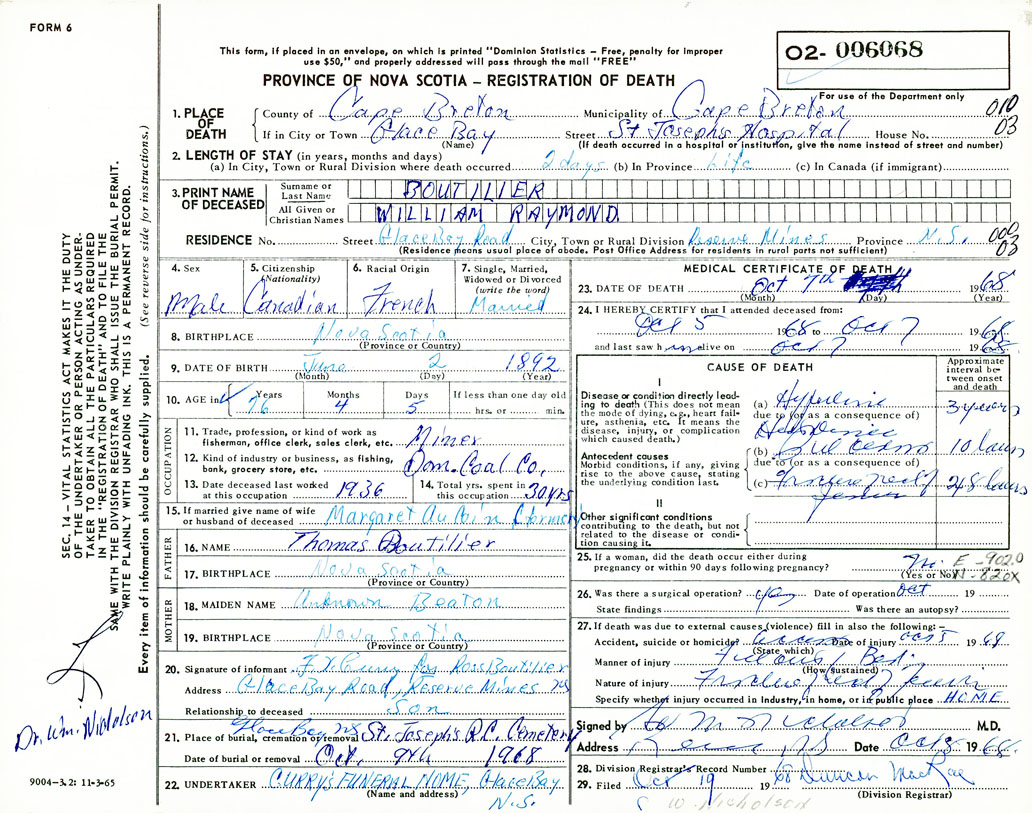 FORM 6
This form, if placed in an envelope, on which is printed "Dominion Statistics – Free, penalty for improper
use $50," and properly addressed will pass through the mail "FREE"
O2- 006068
PROVINCE OF NOVA SCOTIA – REGISTRATION OF DEATH
For use of the Department only
1. PLACE OF DEATH
County of Cape Breton Municipality of Cape Breton 010
If in City or Town Glace Bay Street St Josephs Hospital House No. 03
(Name) (If death occurred in a hospital or institution, give the name instead of street and number)
2. LENGTH OF STAY (in years, months and days)
(a) In City, Town or Rural Division where death occurred 2 days (b) In Province Life (c) In Canada (if immigrant)
3. PRINT NAME OF DECEASED
Surname or Last Name BOUTILIER
All Given or Christian Names WILLIAM RAYMOND
RESIDENCE No. Street Glace Bay Road City, Town or Rural Division Reserve Mines Province N.S. 000
(Residence means usual place of abode. Post Office Address for residents in rural parts not sufficient) 03
4. Sex Male
5. Citizenship (Nationality) Canadian
6. Racial Origin French
7. Single, Married, Widowed or Divorced (write the word) Married
8. BIRTHPLACE Nova Scotia
(Province or Country)
9. DATE OF BIRTH June 2 1892
(Month) (Day) (Year)
10. AGE in Years 76 Months 4 Days 5 If less than one day old hrs. or min.
OCCUPATION
11. Trade, profession, or kind of work as fisherman, office clerk, sales clerk, etc. Miner
12. Kind of industry or business, as fishing, bank, grocery store, etc. Dom. Coal Co.
13. Date deceased last worked at this occupation 1936
14. Total yrs. spent in this occupation 30 yrs
15. If married give name of wife or husband of deceased Margaret AuCoin
FATHER
16. NAME Thomas Boutilier
17. BIRTHPLACE Nova Scotia
(Province or Country)
MOTHER
18. MAIDEN NAME Unknown Beaton
19. BIRTHPLACE Nova Scotia
(Province or Country)
20. Signature of informant Curry for Ross Boutilier
Address Glace Bay Road, Reserve Mines NS
Relationship to deceased Son
21. Place of burial, cremation or removal Glace Bay NS St. Joseph's R.C. Cemetery
Date of burial or removal Oct. 9th 1968
22. UNDERTAKER CURRY'S FUNERAL HOME, Glace Bay
(Name and address) N.S.
MEDICAL CERTIFICATE OF DEATH
23. DATE OF DEATH Oct 7th 1968
(Month) (Day) (Year)
24. I HEREBY CERTIFY that I attended deceased from:
Oct 5 1968 to Oct 7 1968
and last saw him alive on Oct 7 1968
CAUSE OF DEATH
Approximate interval between onset and death
I
Disease or condition directly leading to death (This does not mean the mode of dying, e.g., heart failure, asthenia, etc. It means the disease, injury, or complication which caused death.)
(a) 3 years
due to (or as a consequence of)
Antecedent causes
Morbid conditions, if any, giving rise to the above cause, stating the underlying condition last.
(b) 10
due to (or as a consequence of)
(c) Fracture neck femur 48 hours
II
Other significant conditions contributing to the death, but not related to the disease or condition causing it.
25. If a woman, did the death occur either during pregnancy or within 90 days following pregnancy?
(Yes or No)
E-902.0
N-820X
26. Was there a surgical operation? yes Date of operation Oct 19
State findings Was there an autopsy?
27. If death was due to external causes (violence) fill in also the following:–
Accident, suicide or homicide? Date of injury Oct 5 1968
(State which)
Manner of injury Bed
(How sustained)
Nature of injury Fracture neck femur
Specify whether injury occurred in Industry, in home, or in public place HOME
Signed by M.D.
Address NS Date Oct 8 1968
28. Division Registrar's Record Number
29. Filed Oct 19 1968 Duncan MacRae
(Division Registrar)
W Nicholson
SEC. 14 – VITAL STATISTICS ACT MAKES IT THE DUTY
OF THE UNDERTAKER OR PERSON ACTING AS UNDER-
TAKER TO OBTAIN ALL THE PARTICULARS REQUIRED
IN THE "REGISTRATION OF DEATH" AND TO FILE THE
SAME WITH THE DIVISION REGISTRAR WHO SHALL ISSUE THE BURIAL PERMIT.
WRITE PLAINLY WITH UNFADING INK. THIS IS A PERMANENT RECORD.
Every item of information should be carefully supplied. (See reverse side for instructions.)
Dr. Wm. Nicholson
9004–3.2: 11-3-65